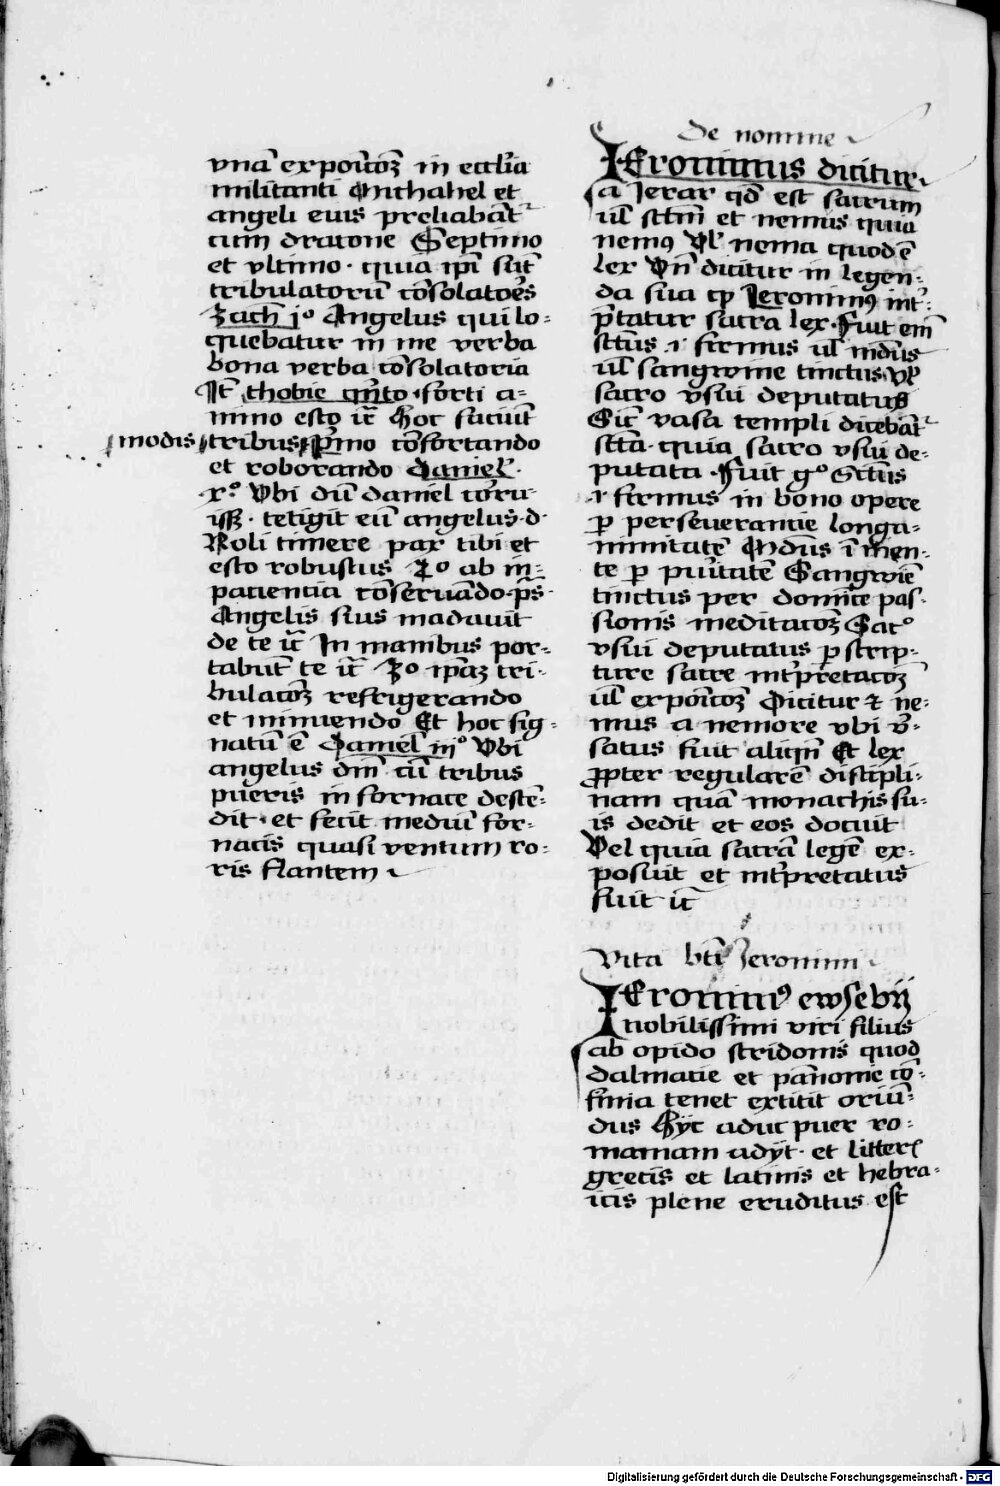 vnā expoīcōꝫ in eccl'ia
militanti Michahel et
angeli eius preliabāt'
cum dracone Septimo
et vltimo · quia ip̄i sūt
tribulatorū cōsolatoēs
Zach̄ jº Angelus qui lo⸗
quebatur in me verba
bona verba cōsolatoria
Itē thobie qn̄to · forti a⸗
nimo esto ic̄ Hoc faciūt
modis
tribus pͥmo cōfortando
et roborando Daniel'
xº Vbi dū daniel cōrru⸗
iss · tetigit eū angelus · d·
Noli timere pax tibi et
esto robustus 2º ab in⸗
paciencia cōseruādo · p̄s·
Angelis suis madauit
de te ic̄ In manibus por⸗
tabūt te ic̄ 3º ip̄aꝫ tri⸗
bulacōꝫ refrigerando
et minuendo Et hoc sig⸗
natū ē Daniel' iijº Vbi
angelus dn̄i cū tribus
pueris in fornace descē⸗
dit · et fecit mediū for⸗
nacis quasi ventum ro⸗
ris flantem
De nomine
IEronimus dicitur
a Jerar qd̄ est sacrum
ul' sctm̄ et nemus quia
nemꝰ Vl' nema quod ē
lex Vn̄ dicitur in legen⸗
da sua qꝫ Jeronimꝰ int'⸗
p̄tatur sacra lex · Fuit em̄
sctūs · i· firmus ul' mūdus
ul' sangwine tinctus · vl'
sacro vsui deputatus
Sic vasa templi dicebāt'
sctā · quia sacro vsui de⸗
putata · Fuit gº Sctūs
· i· firmus in bono opere
ꝑ perseuerantie longa⸗
nimitatē Mūdus ī men⸗
te ꝑ puritatē Sangwiē
tinctus per dominice pas⸗
sionis meditacōꝫ Sacº
vsui deputatus ꝑ scrip⸗
ture sacre int'pretacōꝫ
ul' expoīcōꝫ Dicitur ⁊ ne⸗
mus a nemore vbi v̄⸗
satus fuit aliqn̄ Et lex
ꝓpter regularē discipli⸗
nam quā monachis su⸗
is dedit et eos docuit
Vel quia sacrā legē ex⸗
posuit et int'pretatus
fuit ic̄
Vita bt̄i Jeronimi
IEronimꝰ ewsebij
nobilissimi viri filius
ab opido stridonis quod
dalmatie et pānonie cō⸗
finia tenet extitit oriū⸗
dus Hyc aduc puer ro⸗
mamam adÿt · et litteris
grecis et latinis et hebra⸗
icis plene eruditus est
Digitalisierung gefördert durch die Deutsche Forschungsgemeinschaft - DFG